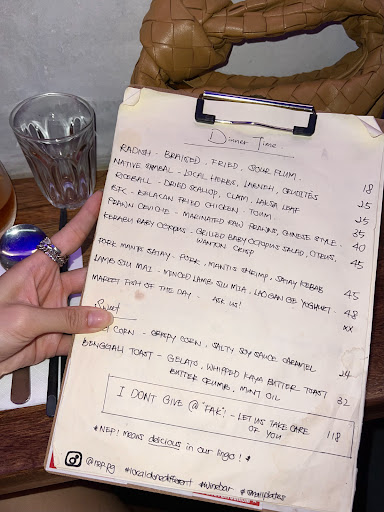 Dinner Time
RADISH - BRAISED, FRIED, SOUR PLUM. 18
NATIVE SAMBAL - LOCAL HERBS, LABNEH, CRUDITÉS 25
RICEBALL - DRIED SCALLOP, CLAM, LAKSA LEAF 25
BFC - BELACAN FRIED CHICKEN - TOUM. 35
PRAWN CEVICHE - MARINATED RAW PRAWNS, CHINESE STYLE. 40
KERABU BABY OCTOPUS - GRILLED BABY OCTOPUS SALAD, CITRUS, 45
WANTON CRISP
PORK MANTIS SATAY - PORK, MANTIS SHRIMP, SATAY KEBAB 45
LAMB SIU MAI - MINCED LAMB SIU MIA, LAO GAN GE YOGHURT. 48
MARKET FISH OF THE DAY - ASK US! XX
Sweet
CORN - CRISPY CORN, SALTY SOY SAUCE CARAMEL 24
BENGGALI TOAST - GELATO, WHIPPED KAYA BUTTER TOAST 32
BUTTER CRUMBS, MINT OIL
I DONT GIVE @ "FAK"! - LET US TAKE CARE 118
OF YOU
* NEP! means delicious in our lingo! *
@nep.pg #localdonedifferent #winebar #smallplates